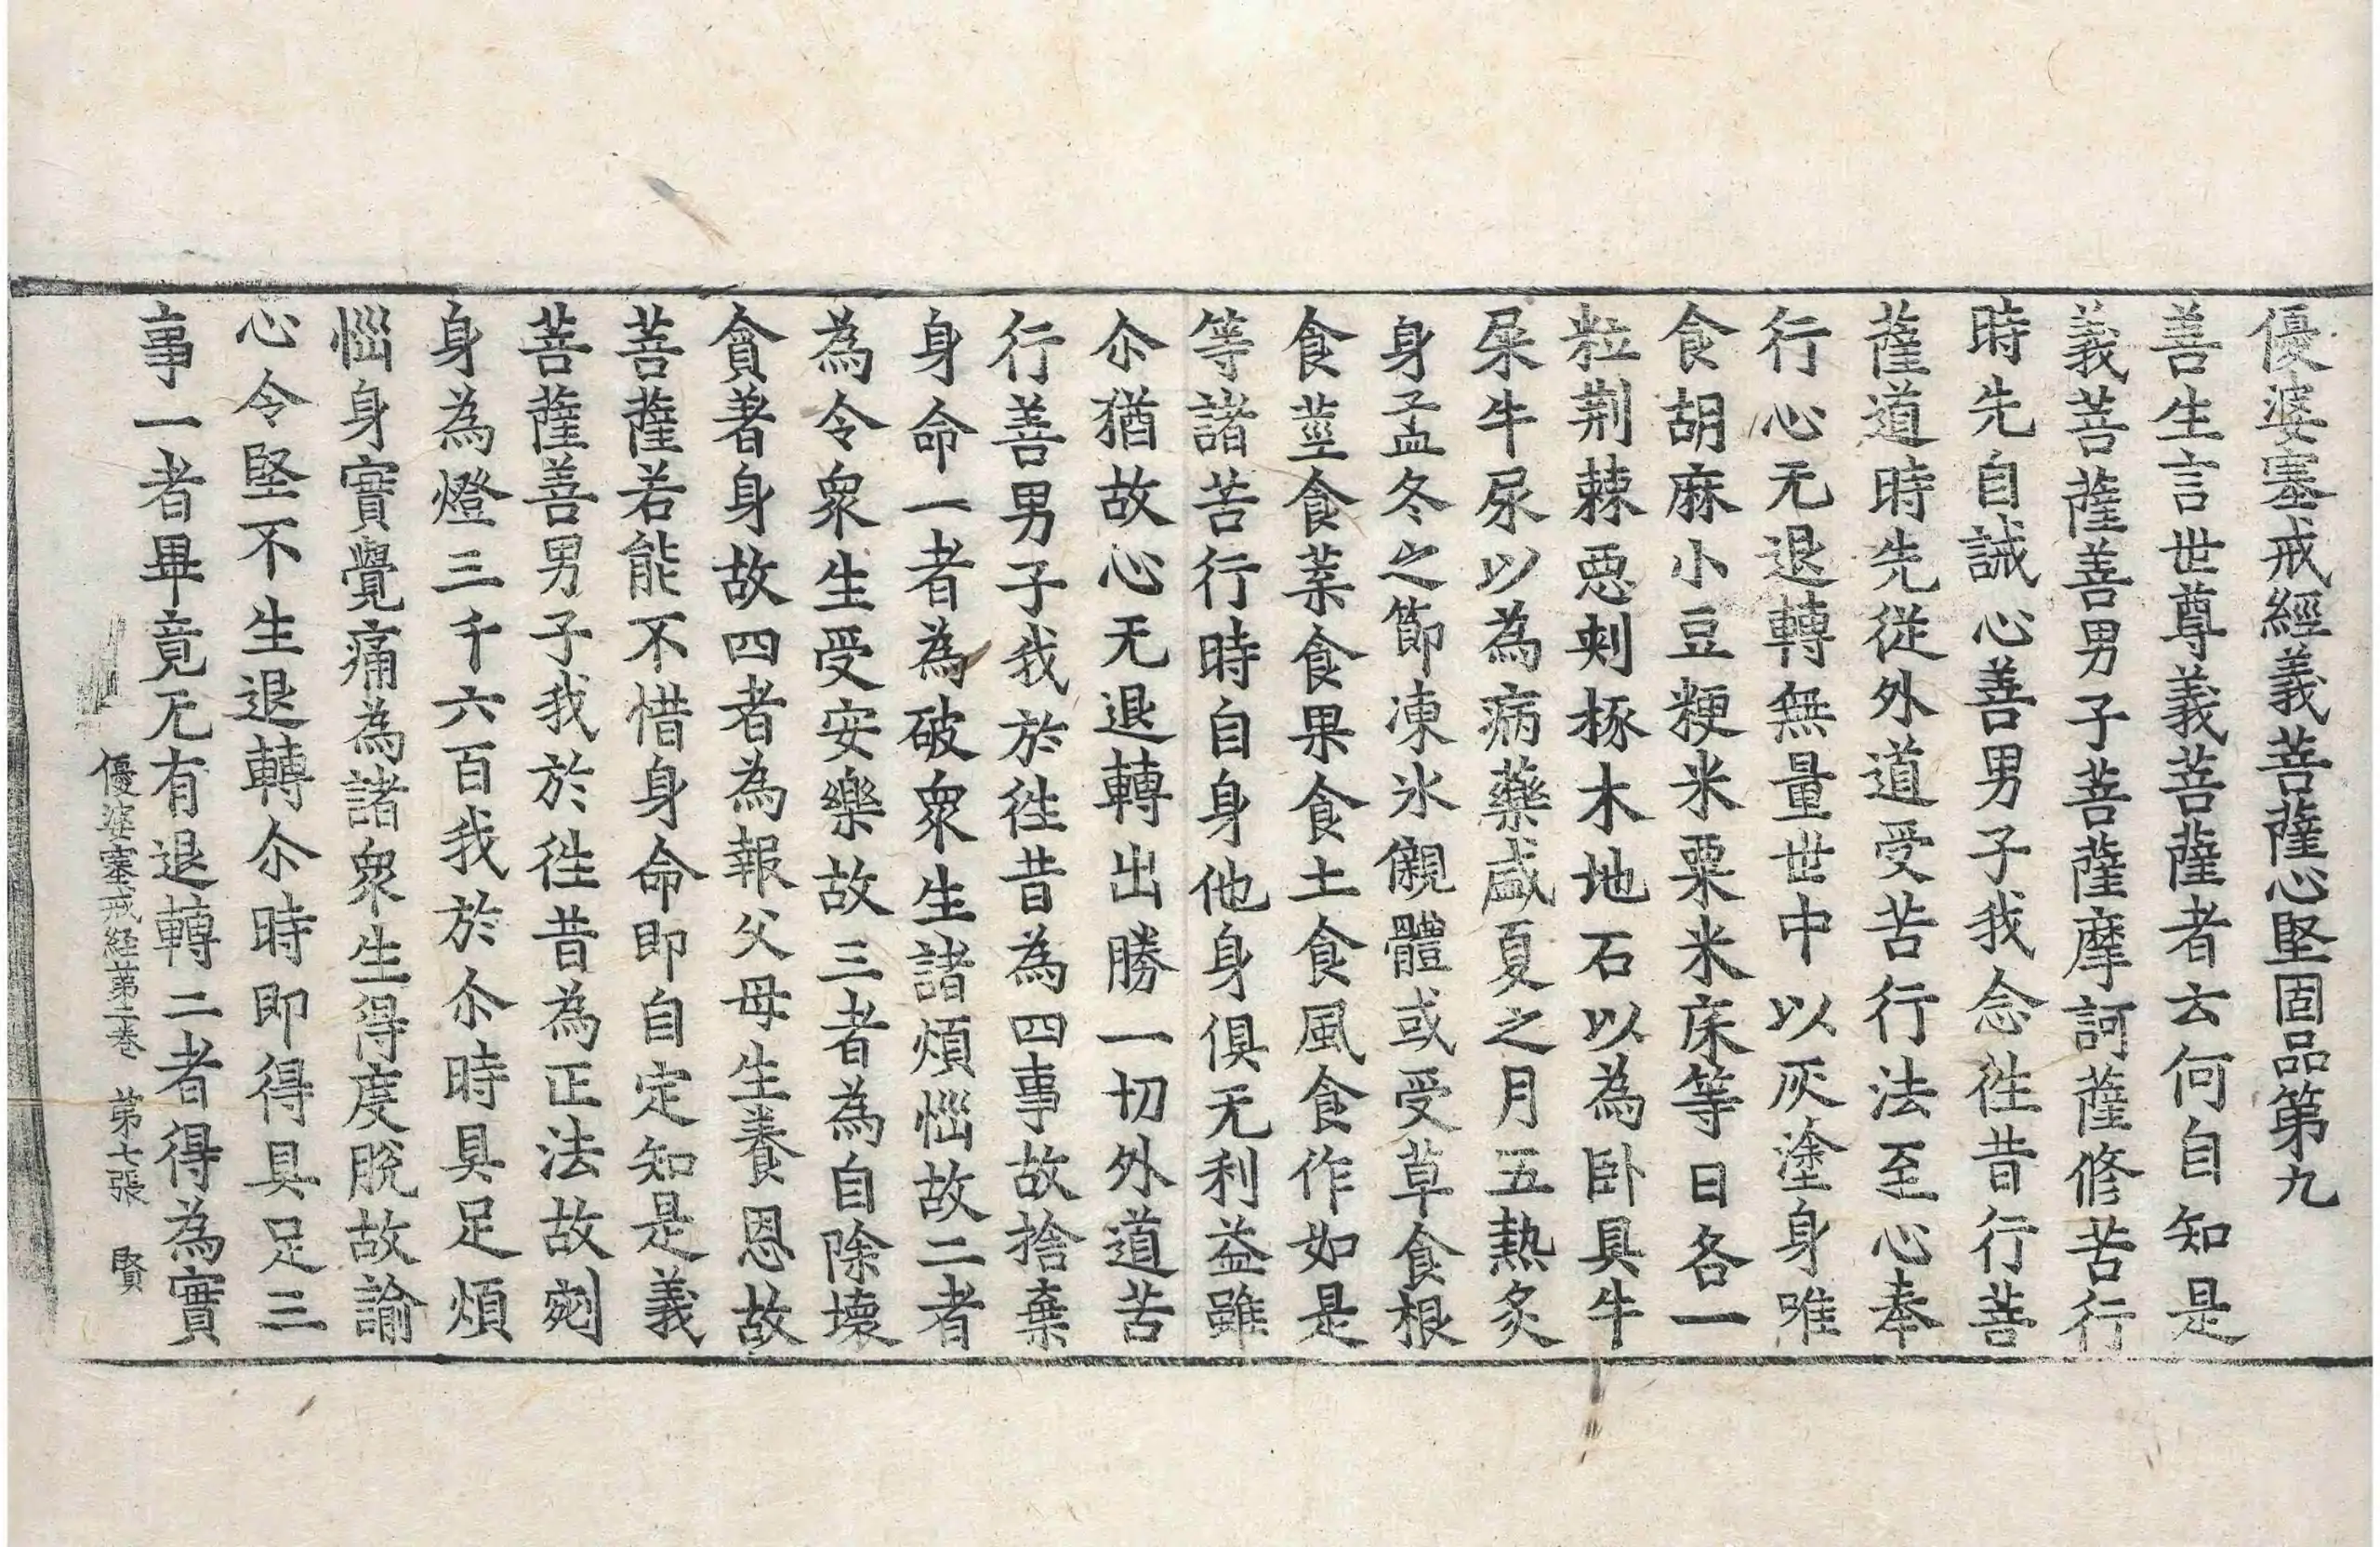 優婆塞戒經義菩薩心堅固品第九
善生言世尊義菩薩者云何自知是
義菩薩善男子菩薩摩訶薩修苦行
時先自誡心善男子我念徃昔行菩
薩道時先從外道受苦行法至心奉
行心无退轉無量世中以灰塗身唯
食胡麻小豆粳米粟米床等日各一
粒荆棘惡刺椓木地石以為卧具牛
屎牛尿以為病藥盛夏之月五熱炙
身孟冬之節凍氷儭體或受草食根
食莖食葉食果食土食風食作如是
等諸苦行時自身他身俱无利益雖
尒猶故心无退轉出勝一切外道苦
行善男子我於徃昔為四事故捨棄
身命一者為破衆生諸煩惱故二者
為令衆生受安樂故三者為自除壞
貪著身故四者為報父母生養恩故
菩薩若能不惜身命即自定知是義
菩薩善男子我於徃昔為正法故剜
身為燈三千六百我於尒時具足煩
惱身實覺痛為諸衆生得度脫故諭
心令堅不生退轉尒時即得具足三
事一者畢竟无有退轉二者得為實
優婆塞戒経苐二卷 苐七張 賢